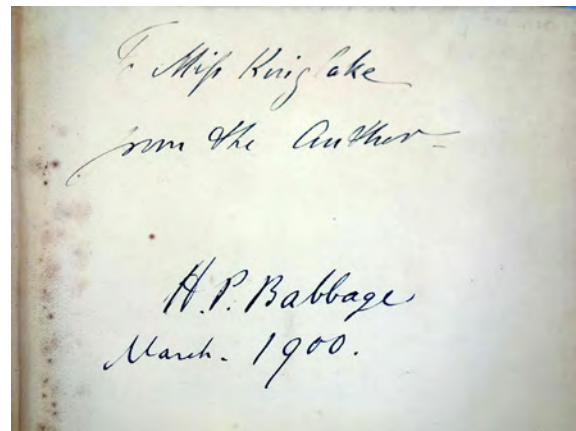 To Miss Kinglake
from the Author
H. P. Babbage
March. 1900.